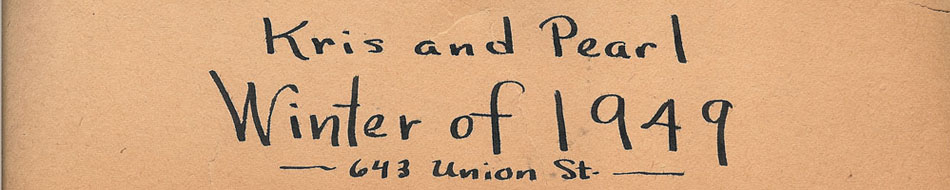 Kris and Pearl
Winter of 1949
— 643 Union St. —